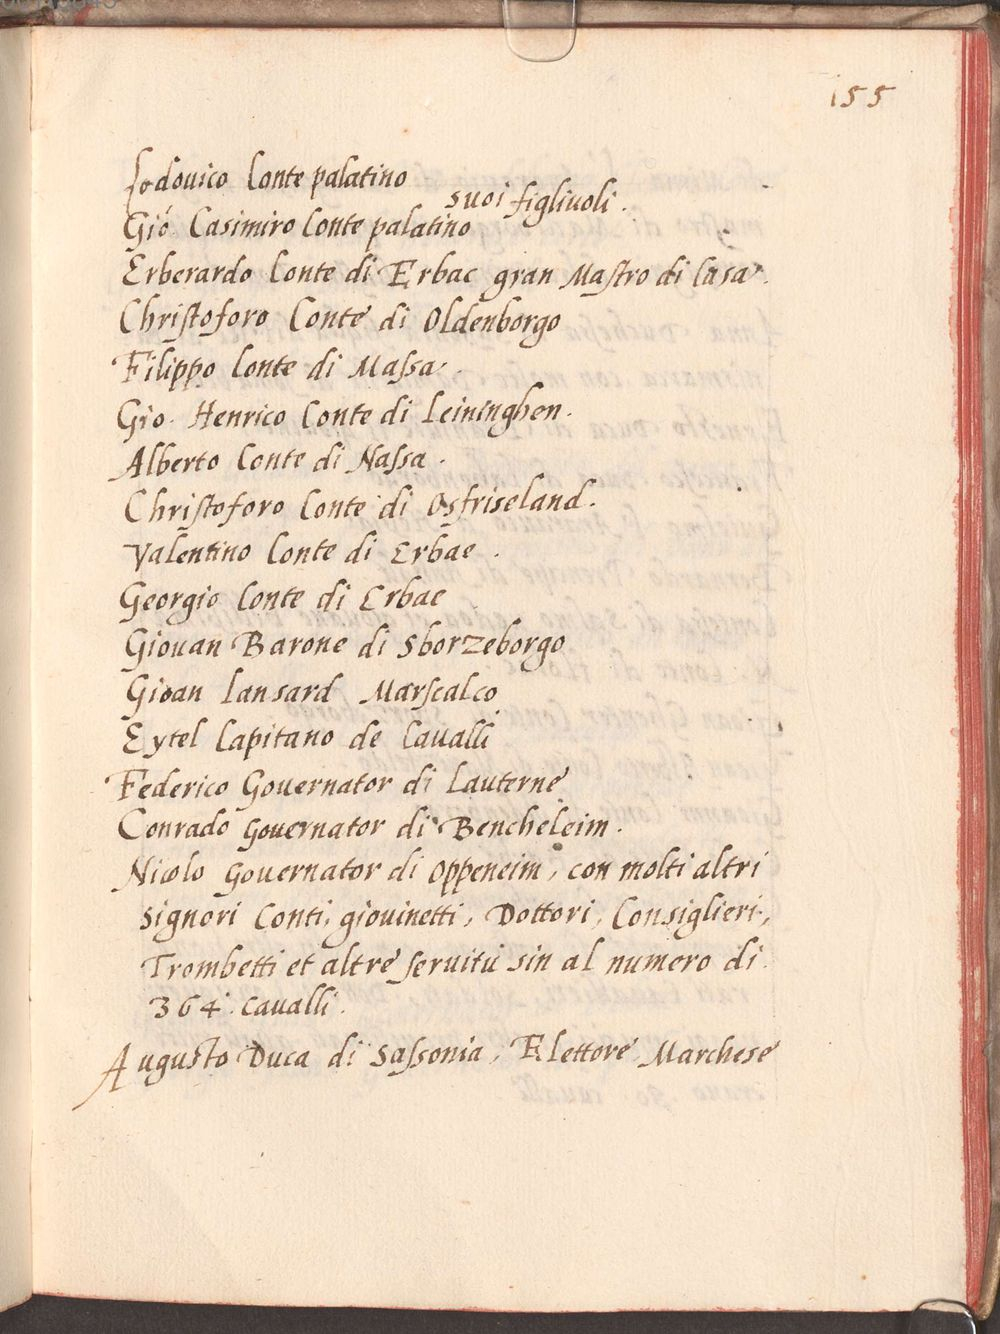 155
Lodovico Conte palatino
suoi figliuoli.
Gio. Casimiro Conte palatino
Erberardo Conte di Erbac gran Mastro di Casa.
Christoforo Conte di Oldenborgo
Filippo Conte di Massa.
Gio. Henrico Conte di Leininghen.
Alberto Conte di Nassa.
Christoforo Conte di Osfriseland.
Valentino Conte di Erbae.
Georgio Conte di Erbae
Giouan Barone di Sborzeborgo
Gioan Lansard Marscalco
Eytel Capitano de Caualli
Federico Gouernator di Lauterne
Conrado Gouernator di Bencheleim.
Nicolo Gouernator di Oppeneim, con molti altri
Signori Conti, giouinetti, Dottori, Consiglieri,
Trombetti et altre seruitù sin al numero di
364. Caualli.
Augusto Duca di Sassonia, Elettore Marchese